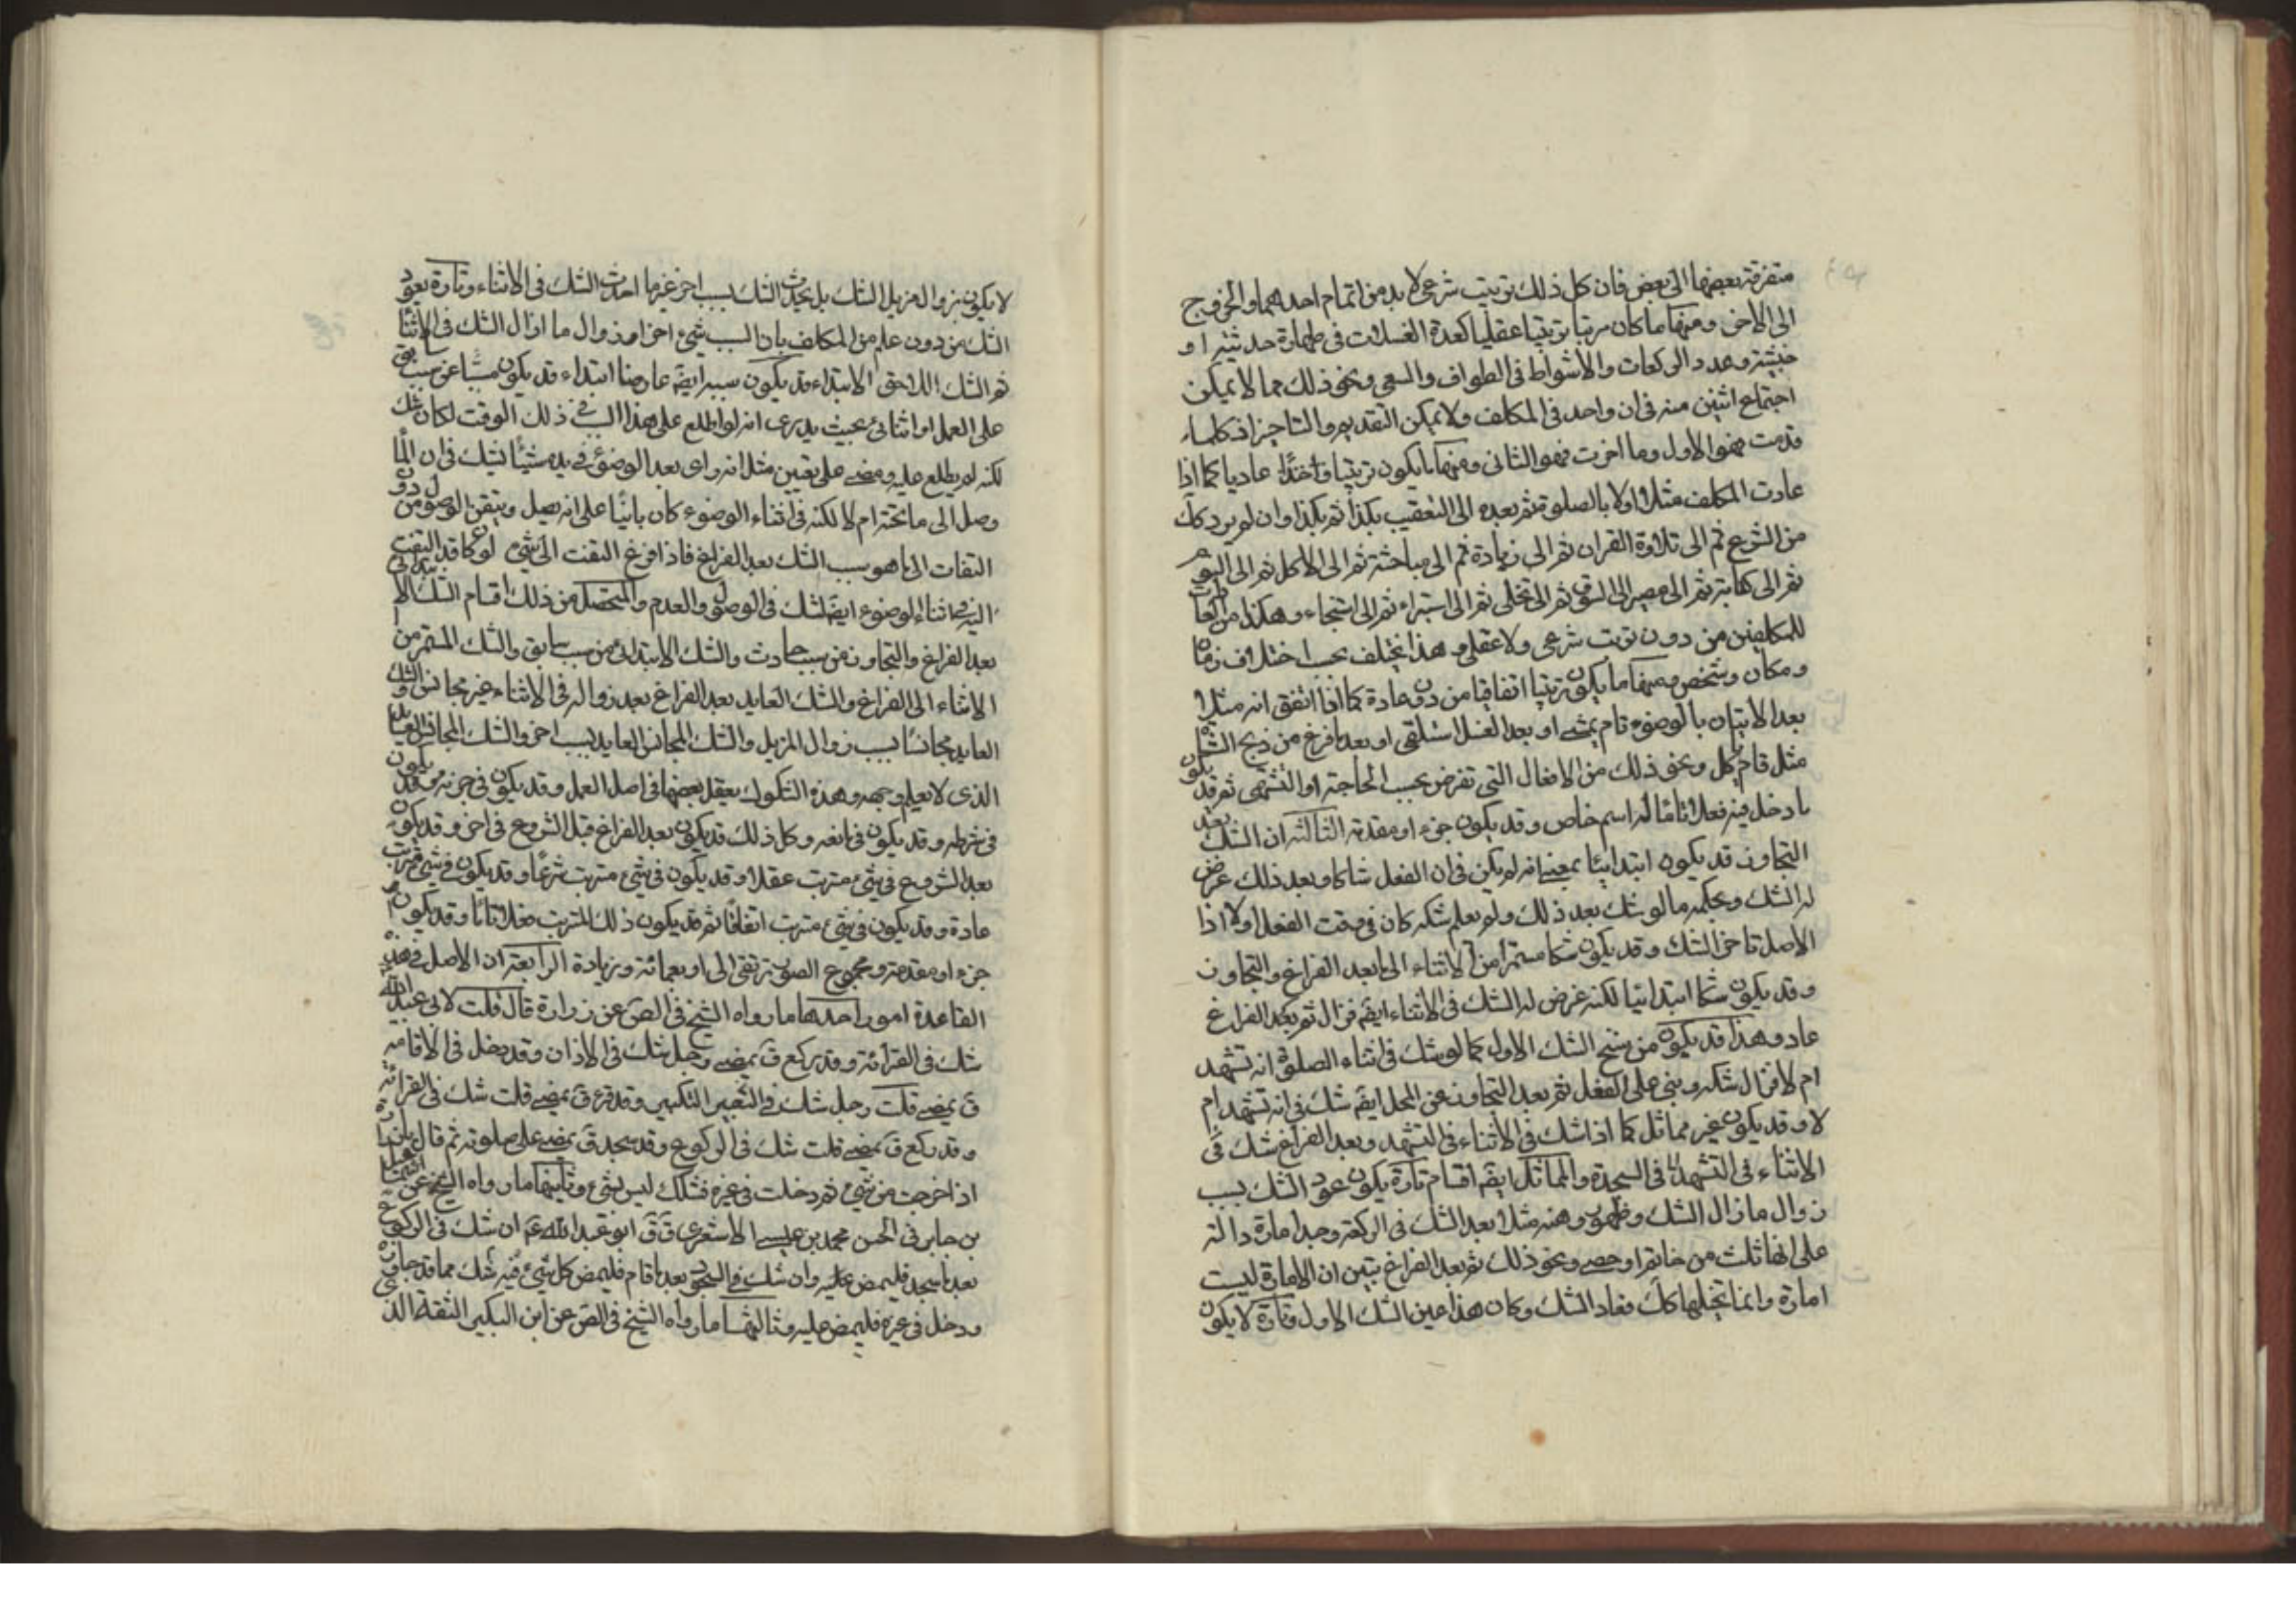 متفرقة بعضها الى بعض فان كل ذلك ترتيب شرعي لا بد من اتمام احدهما والخروج
الى الاخر ومنها ما كان مرتبا ترتيبا عقليا كعدة الغسلات في طهارة حدثية او
خبثية وعدد الركعات والاشواط في الطواف والسعي ونحو ذلك مما لا يمكن
اجتماع اثنين منه في ان واحد في المكلف ولا يمكن التقديم والتاخير اذ كلما
قدمت فهو الاول وما اخرت فهو الثاني ومنها ما يكون ترتيبا عاديا كما اذا
عادت المكلف مثلا اولا بالصلوة ثم بعده الى التعقيب بكذا ثم بكذا وان لم يرد كك
من الشرع ثم الى تلاوة القران ثم الى زيادة ثم الى مباحثة ثم الى الاكل ثم الى النوم
ثم الى كتابة ثم الى مصير الى السوق ثم الى تخلى ثم الى استبراء ثم الى استنجاء وهكذا من العادات
للمكلفين من دون ترتب شرعي ولا عقلي وهذا يختلف بحسب اختلاف زمان
ومكان وشخص ومنها ما يكون ترتيبا اتفاقيا من دون عادة كما اذا اتفق انه مثلا
بعد الاتيان بالوضوء قام يمشي او بعد الغسل استلقى او بعد ما فرغ من ذبح الشاة
مثلا قام يأكل ونحو ذلك من الافعال التي تفرض بحسب الحاجة او التشهى ثم قد يكون
ما دخل فيه فعلا تاما له اسم خاص وقد يكون جزء او مقدمة الثالثة ان الشك بعد
التجاوز قد يكون ابتدائيا بمعنى انه لم يكن في ان الفعل شاكا وبعد ذلك عرض
له الشك وبحكمه ما لو شك بعد ذلك ولم يعلم شكه كان في وقت الفعل اولا اذا
الاصل تاخر الشك وقد يكون شكا مستمرا من الاثناء الى ما بعد الفراغ والتجاوز
وقد يكون شكا ابتدائيا لكنه عرض له الشك في الاثناء ايضا فزال ثم بعد الفراغ
عاد وهذا قد يكون من سنخ الشك الاول كما لو شك في اثناء الصلوة انه تشهد
ام لا فزال شكه وبنى على الفعل ثم بعد التجاوز عن المحل ايضا شك في انه تشهد ام
لا وقد يكون غير مماثل كما اذا شك في الاثناء في التشهد وبعد الفراغ شك في
الاثناء في التشهد في السجدة والمماثل ايضا اقسام تارة يكون عود الشك بسبب
زوال ما زال الشك وظهور وهنه مثلا بعد الشك في الركعة وجد امارة دالة
على انها ثلث من خاتم او حصى ونحو ذلك ثم بعد الفراغ تبين ان الامارة ليست
امارة وانما تخيلها كك فعاد الشك وكان هذا عين الشك الاول وتارة لا يكون
لا يكون بزوال مزيل الشك بل يحدث الشك بسبب اخر غير ما احدث الشك في الاثناء وتارة يعود
الشك من دون علم من المكلف بان السبب شيء اخر او زوال ما ازال الشك في الاثناء
ثم الشك اللاحق الابتداء قد يكون سببه ايضا عارضا ابتداء وقد يكون مسببا عن سبب سابق
على العمل او اثنائه بحيث يدرى انه لو اطلع على هذا السبب في ذلك الوقت لكان شك
لكنه لم يطلع عليه ومضى على يقين مثلا انه راى بعد الوضوء في يده شيئا فشك في ان الماء
وصل الى ما تحته ام لا لكنه في اثناء الوضوء كان بانيا على انه يصل ويتقن الوصول من دون
التفات الى ما هو سبب الشك بعد الفراغ فاذا فرغ التفت الى شيء لو كان قد التفت
اليه في اثناء الوضوء ايضا لشك في الوصول والعدم والمتحصل من ذلك اقسام الشك الابتدائي
بعد الفراغ والتجاوز عن سبب حادث والشك الابتدائي عن سبب سابق والشك المستمر من
الاثناء الى الفراغ والشك العايد بعد الفراغ بعد زواله في الاثناء غير مجانس والشك
العايد مجانسا بسبب زوال المزيل والشك المجانس العايد بسبب اخر والشك المجانس العايد
الذى لا يعلم وجهه وهذه الشكوك يعقل بعضها في اصل العمل وقد يكون في جزئه وقد يكون
في شرطه وقد يكون في مانعه وكل ذلك قد يكون بعد الفراغ قبل الشروع في اخر وقد يكون
بعد الشروع في شيء مترتب عقلا وقد يكون في شيء مترتب شرعا وقد يكون في شيء مترتب
عادة وقد يكون في شيء مترتب اتفاقا ثم قد يكون ذلك المترتب فعلا تاما وقد يكون
جزء او مقدمة ومجموع الصور ترتقى الى اربعمائة وزيادة الرابعة ان الاصل في هذه
القاعدة امور احدها ما رواه الشيخ في الصحيح عن زرارة قال قلت لابي عبد الله
شك في القرائة وقد ركع ق يمضى رجل شك في الاذان وقد دخل في الاقامة
ق يمضى قلت رجل شك في التكبير وقد قرء ق يمضى قلت شك في القرائة
وقد ركع ق يمضى قلت شك في الركوع وقد سجد ق يمضى على صلوته ثم قال يا زرارة
اذا خرجت من شيء ثم دخلت في غيره فشكك ليس بشيء وثانيها ما رواه الشيخ عن
بن جابر في الحسن محمد بن عيسى الاشعري ق ق ابو عبد الله ع ان شك في الركوع
بعد ما سجد فليمض عليه وان شك في السجود بعد ما قام فليمض كل شيء فيه شك مما قد جاوزه
ودخل في غيره فليمض عليه وثالثها ما رواه الشيخ في الصحيح عن ابن البكير الثقة الذ